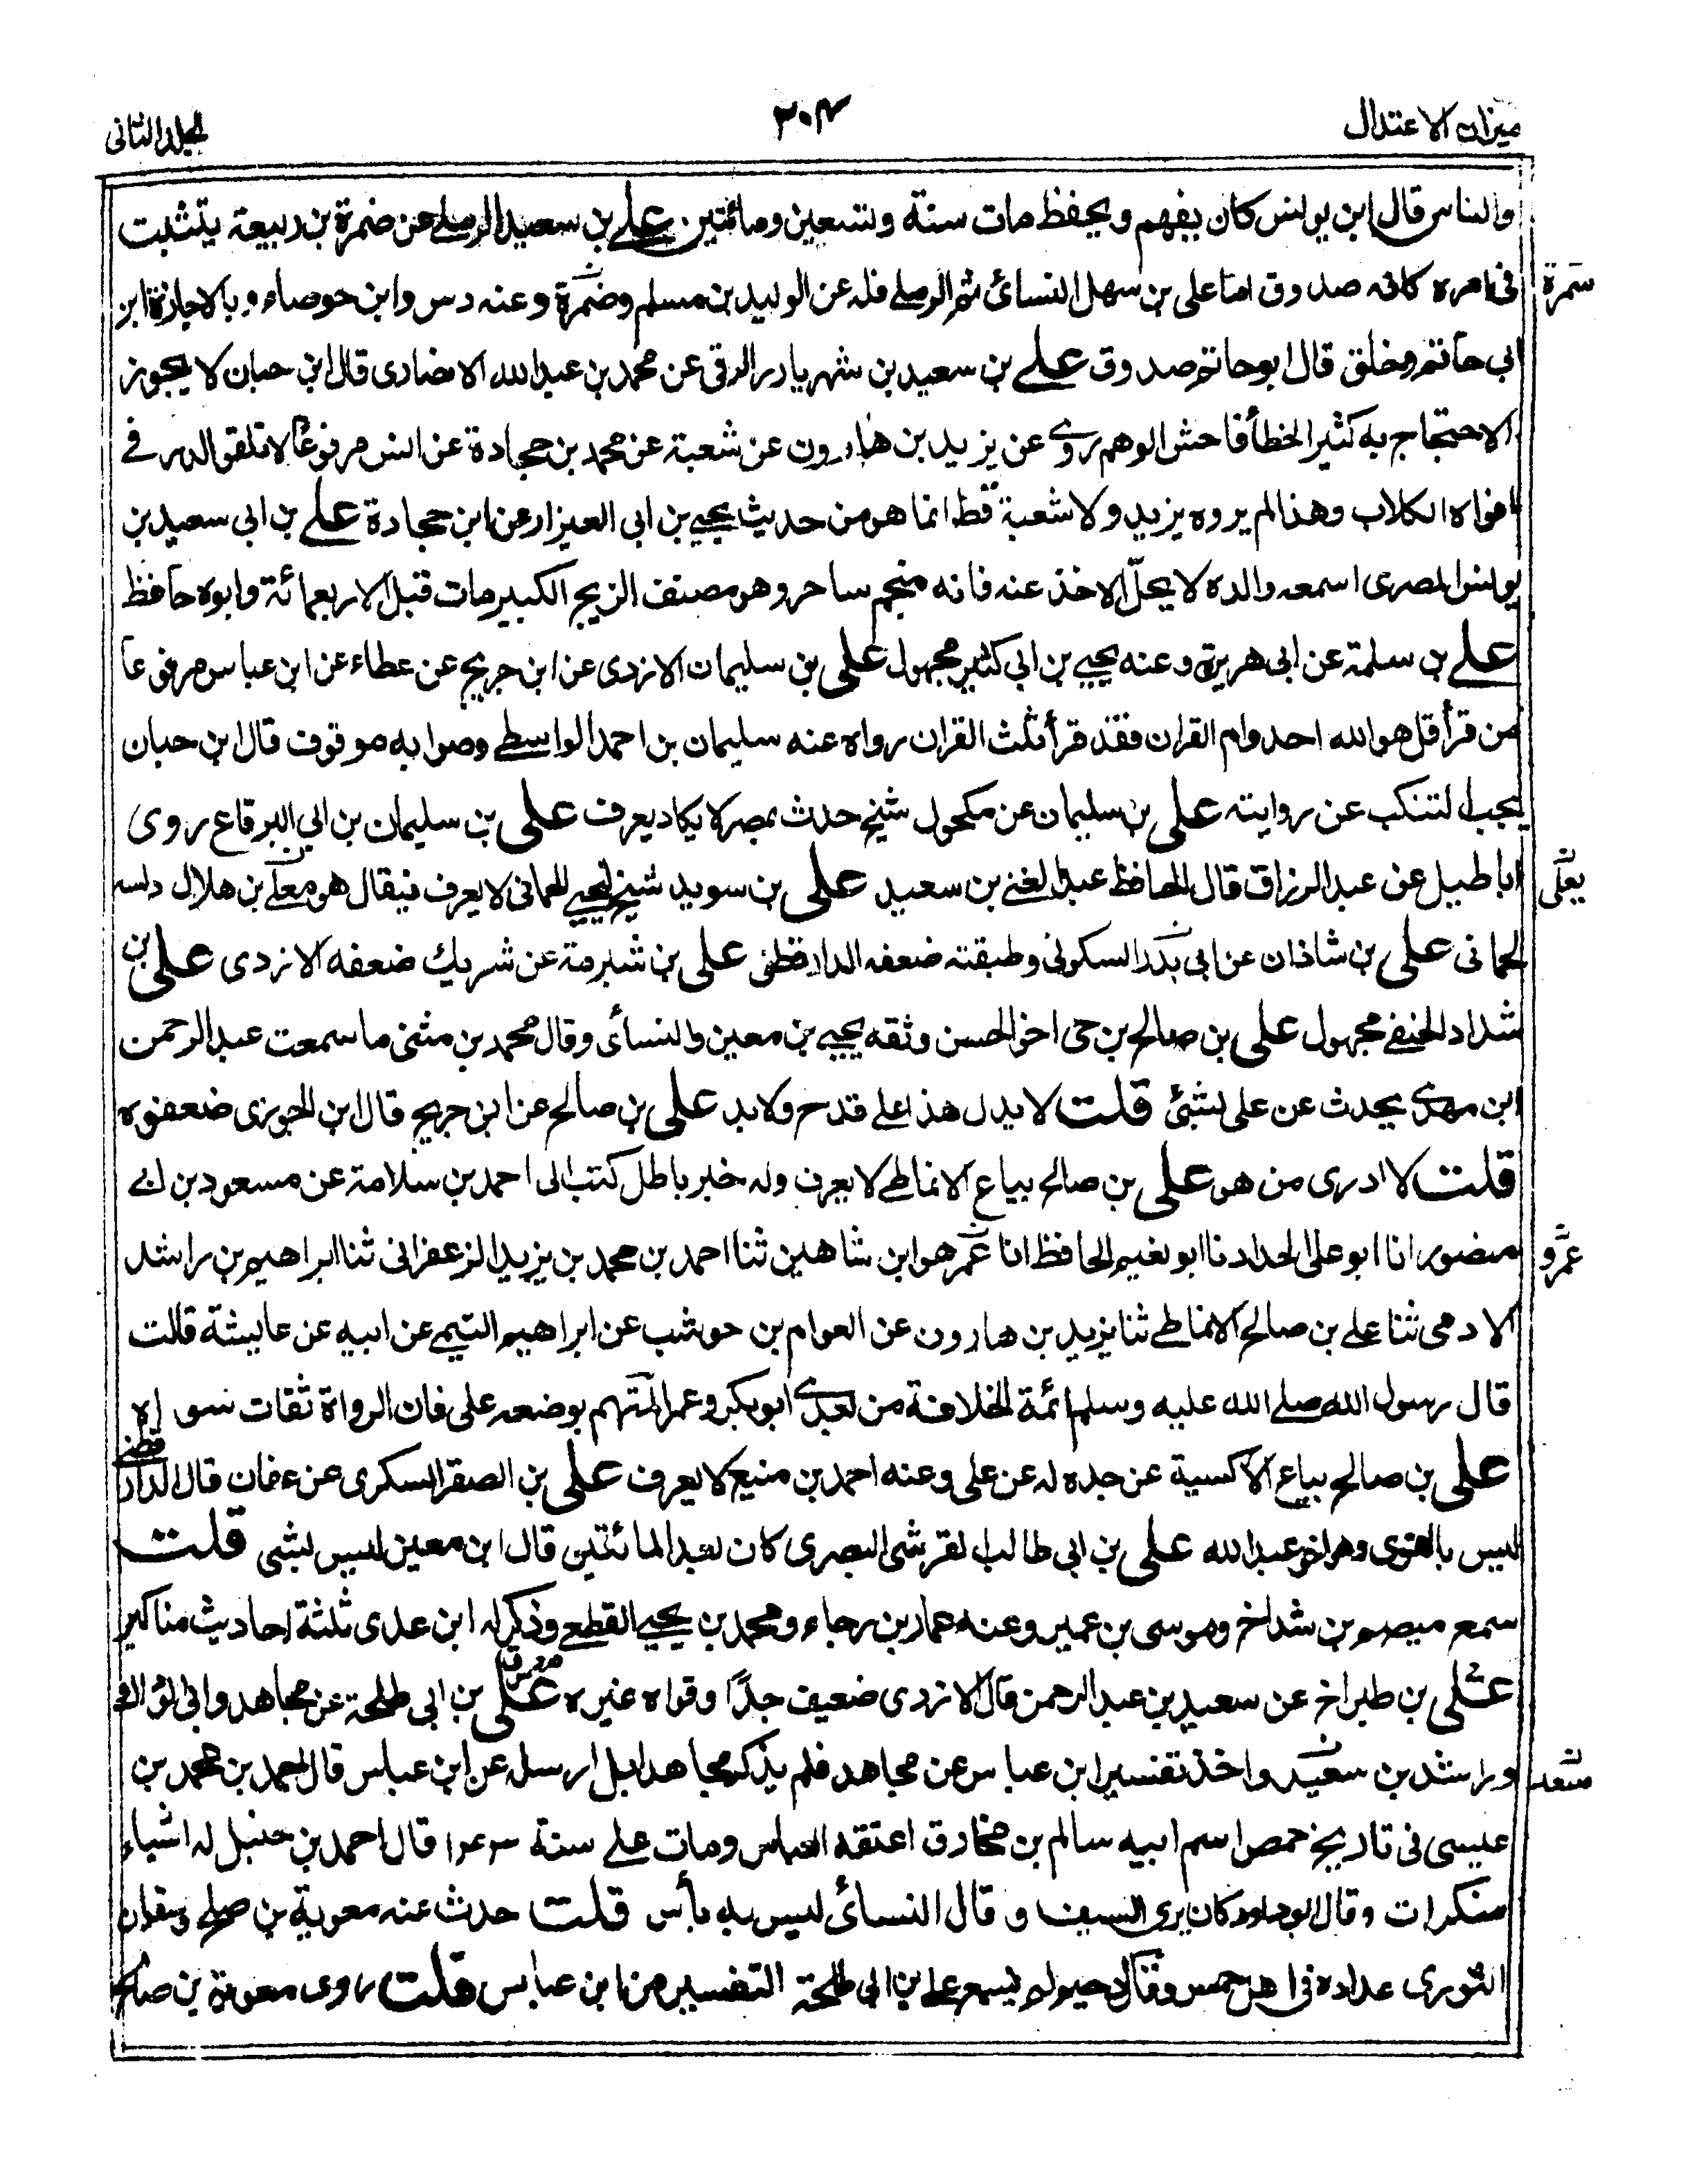 ميزان الاعتدال
٣٠٤
الجلد الثانى
والناس قال ابن يونس كان يفهم ويحفظ مات سنة وتسعين ومائتين علي بن سعيد الرملي عن ضمرة بن ربيعة يتثبت
فى امره كانه صدوق اما على بن سهل النسائى ثم الرملي فله عن الوليد بن مسلم وضمرة وعنه دس وابن حوصاء وبالاجازة ابن
ابى حاتم وخلق قال ابو حاتم صدوق علي بن سعيد بن شهريار الرقى عن محمد بن عبد الله الانصارى قال ابن حبان لا يجوز
الاحتجاج به كثير الخطأ فاحش الوهم روي عن يزيد بن هارون عن شعبة عن محمد بن جحادة عن انس مرفوعًا لا تلقو الدر في
افواه الكلاب وهذا لم يروه يزيد ولا شعبة قط انما هو من حديث يحيي بن ابى العيزار عن ابن جحادة علي بن ابى سعيد بن
يونس المصرى اسمعه والده لا يحلّ الاخذ عنه فانه منجم ساحر وهو مصنف الزيج الكبير مات قبل الاربعمائة وابوه حافظ
علي بن سلمة عن ابى هريرة وعنه يحيي بن ابى كثير مجهول على بن سليمان الازدى عن ابن جريج عن عطاء عن ابن عباس مرفوعا
من قرأ قل هو الله احد وام القران فقد قرأ ثلث القران رواه عنه سليمان بن احمد الواسطي وصوابه موقوف قال ابن حبان
يجب التنكب عن روايته على بن سليمان عن مكحول شيخ حدث بمصر لا يكاد يعرف على بن سليمان بن ابى الرقاع روى
اباطيل عن عبد الرزاق قال الحافظ عبد الغني بن سعيد على بن سويد شيخ ليحيي الحمانى لا يعرف فيقال هو معلي بن هلال دلسه
الحمانى على بن شاذان عن ابى بدر السكونى وطبقته ضعفه الدارقطنى على بن شبرمة عن شريك ضعفه الازدى على بن
شداد الحنفي مجهول على بن صالح بن حى اخو الحسن وثقه يحيي بن معين والنسائى وقال محمد بن مثنى ما سمعت عبد الرحمن
ابن مهدي يحدث عن على بشئ قلت لا يدل هذا علي قدح ولابد على بن صالح عن ابن جريج قال ابن الجوزى ضعفوه
قلت لا ادرى من هو على بن صالح بياع الانماطي لا يعرف وله خبر باطل كتب الى احمد بن سلامة عن مسعود بن ابي
منصور انا ابو على الحداد نا ابو نعيم الحافظ انا عمر هو ابن شاهين ثنا احمد بن محمد بن يزيد الزعفرانى ثنا ابراهيم بن راشد
الادمى ثنا علي بن صالح الانماطي ثنا يزيد بن هارون عن العوام بن حوشب عن ابراهيم التيمي عن ابيه عن عايشة قالت
قال رسول الله صلي الله عليه وسلم ائمة الخلافة من بعدي ابو بكر وعمر المتهم بوضعه على فان الرواة ثقات سواه
على بن صالح بياع الاكسية عن جده له عن على وعنه احمد بن منيع لا يعرف على بن الصقر السكرى عن عفان قال الدارقطني
ليس بالقوى وهو اخو عبد الله على بن ابى طالب القرشى البصرى كان بعد المائتين قال ابن معين ليس بشى قلت
سمع هيصم بن شداخ وموسى بن عمير وعنه عمار بن رجاء ومحمد بن يحيي القطعي وذكر له ابن عدى ثلثة احاديث مناكير
على بن طبراخ عن سعيد بن عبد الرحمن قال الازدى ضعيف جدًا وقواه غيره على بن ابى طلحة عن مجاهد وابى الوداك
وراشد بن سعيد واخذ تفسير ابن عباس عن مجاهد فلم يذكر مجاهدا بل ارسله عن ابن عباس قال احمد بن محمد بن
عيسى فى تاريخ حمص اسم ابيه سالم بن مخارق اعتقه العباس ومات علي سنة ١٤٣ قال احمد بن حنبل له اشياء
منكرات وقال ابو داود كان يرى السيف وقال النسائى ليس به بأس قلت حدث عنه معوية بن صالح وسفيان
الثورى عداده فى اهل حمص وقال دحيم لم يسمع علي بن ابى طلحة التفسير من ابن عباس قلت روى معوية بن صالح
سمرة
يعلى
عمرو
سعد